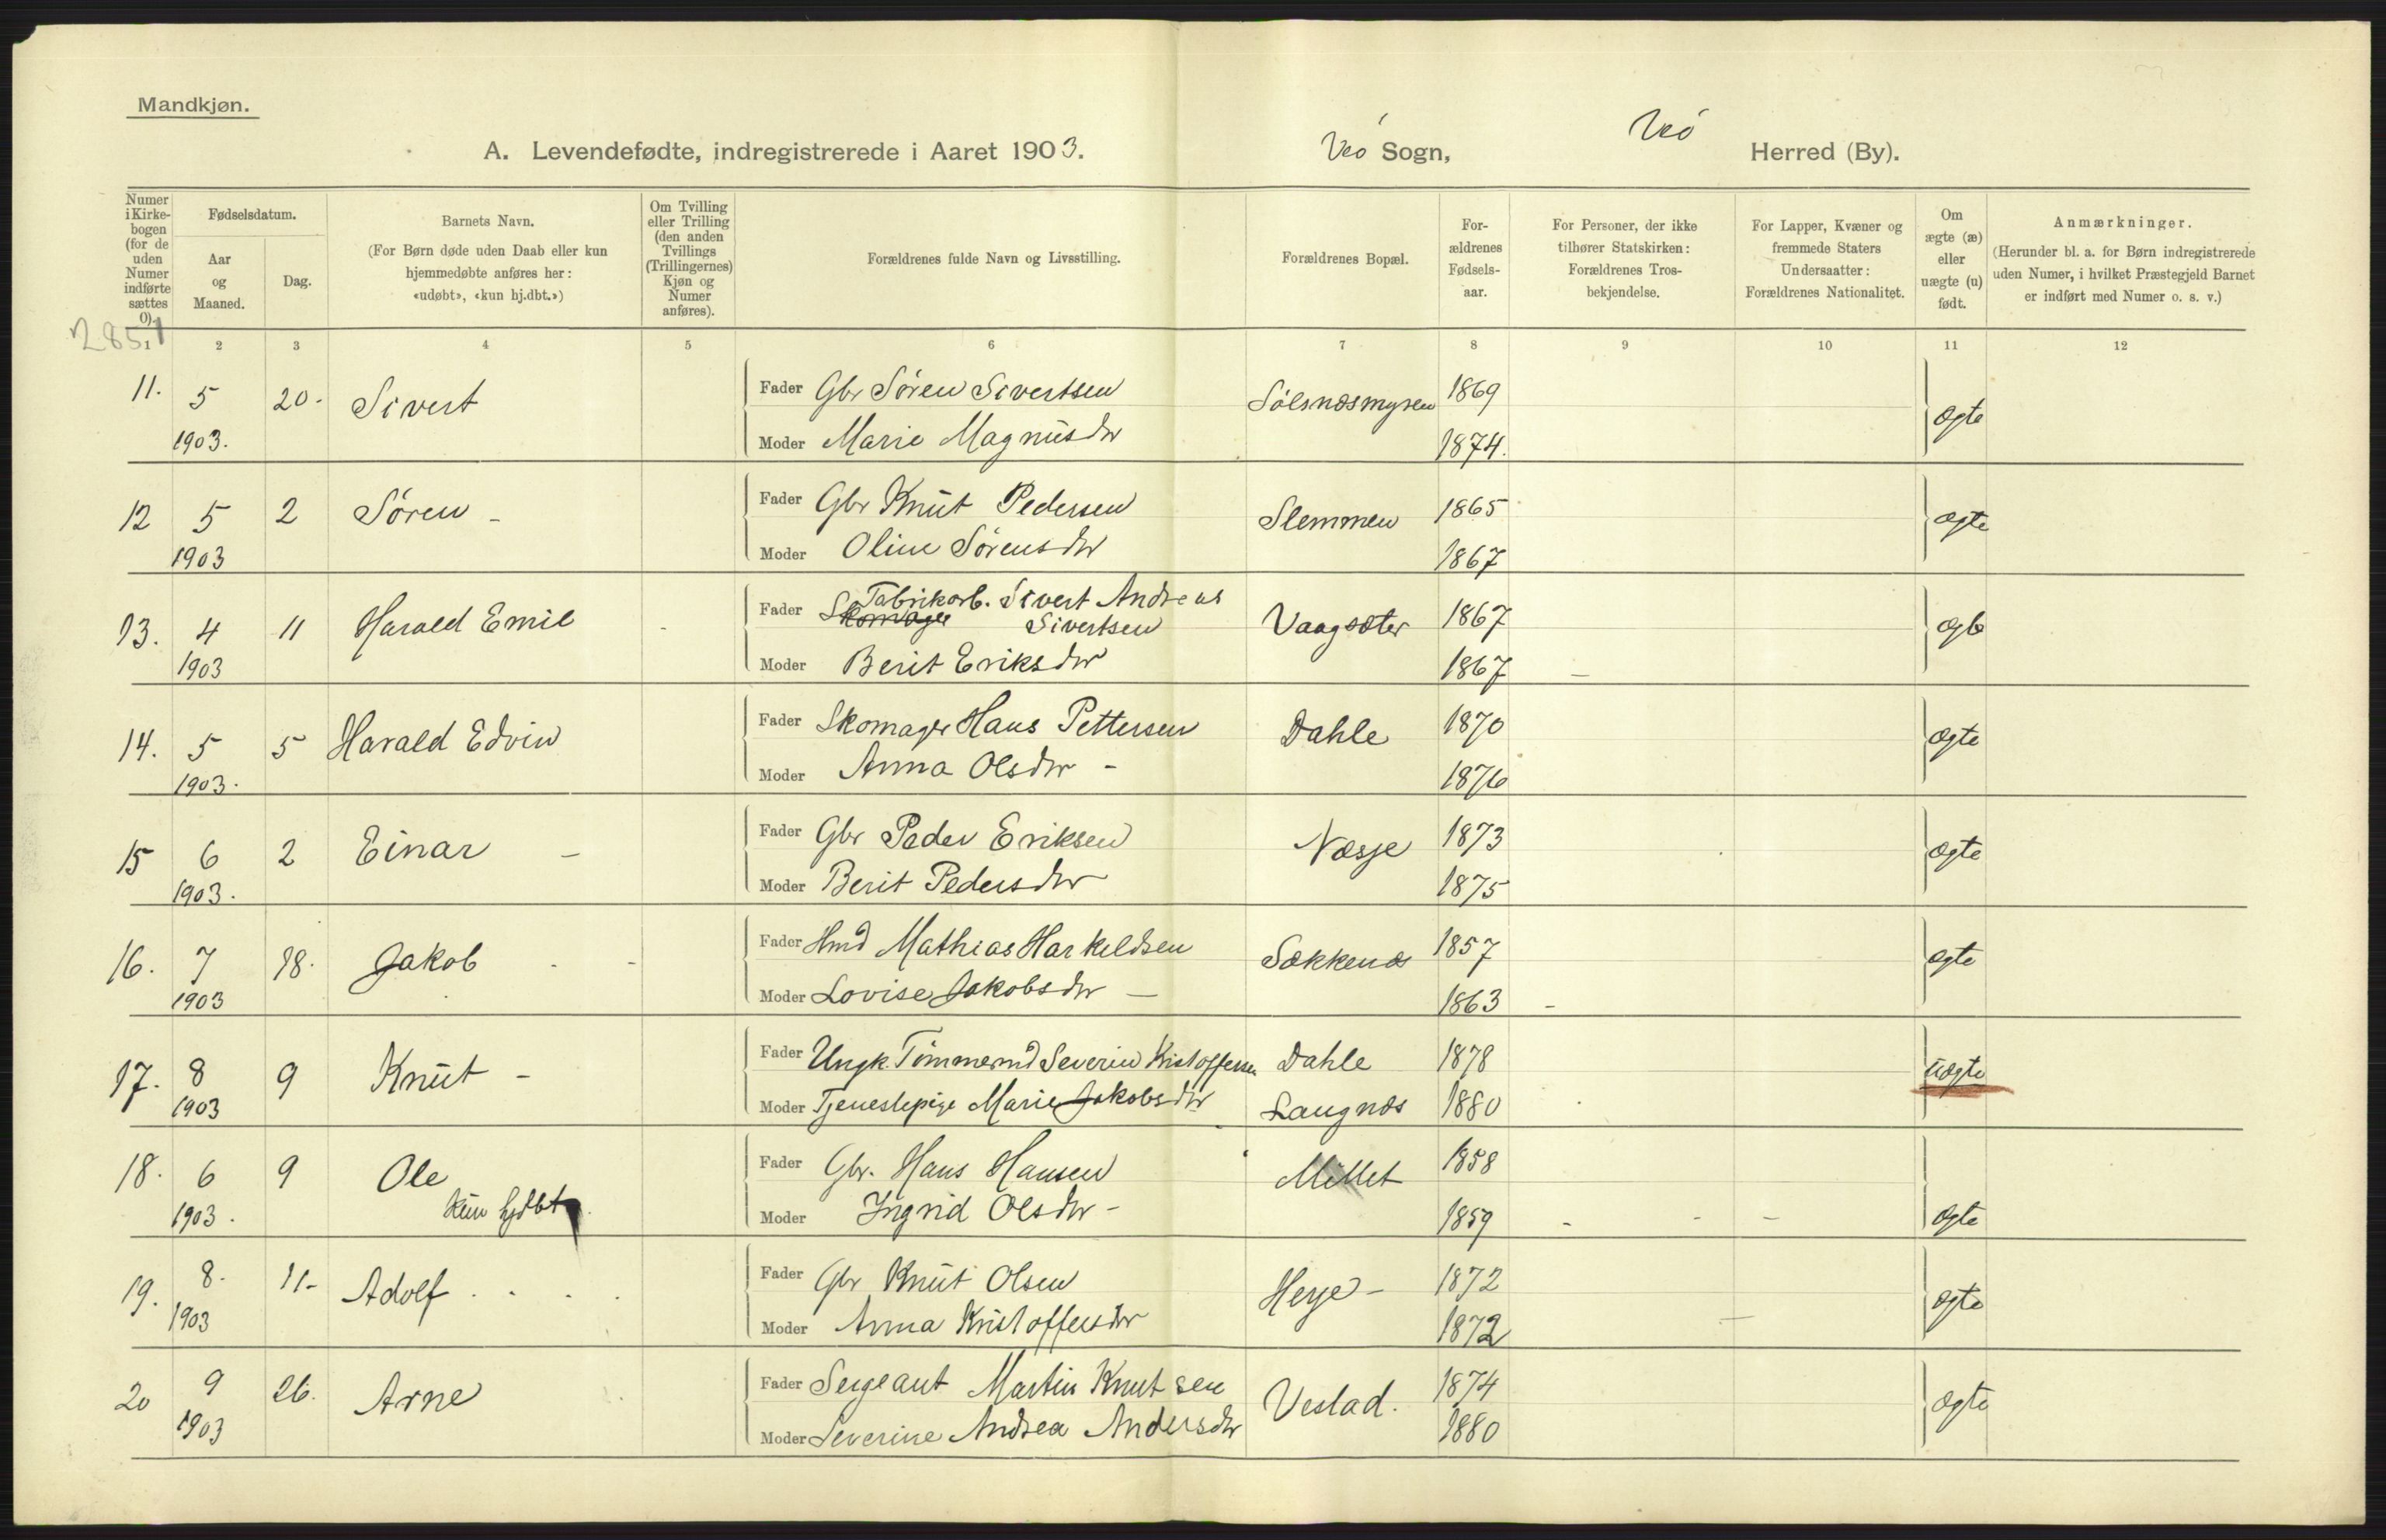 Mandkjøn.
A. Levendefødte, indregistrerede i Aaret 1903. Veø Sogn, Veø Herred (By).
Numer i Kirkebogen (for de uden Numer indførte sættes 0).
Fødselsdatum.
Aar og Maaned.
Dag.
Barnets Navn.
(For Børn døde uden Daab eller kun hjemmedøbte anføres her: «udøbt», «kun hj.dbt.»)
Om Tvilling eller Trilling (den anden Tvillings (Trillingernes) Kjøn og Numer anføres).
Forældrenes fulde Navn og Livsstilling.
Forældrenes Bopæl.
Forældrenes Fødselsaar.
For Personer, der ikke tilhører Statskirken: Forældrenes Trosbekjendelse.
For Lapper, Kvæner og fremmede Staters Undersaatter: Forældrenes Nationalitet.
Om ægte (æ) eller uægte (u) født.
Anmærkninger.
(Herunder bl. a. for Børn indregistrerede uden Numer, i hvilket Præstegjeld Barnet er indført med Numer o. s. v.)
2851
1 2 3 4 5 6 7 8 9 10 11 12
11. 5 20. Sivert Fader Gbr Søren Sivertsen Sølsnæsmyren 1869 ægte
1903. Moder Marie Magnusdtr 1874.
12 5 2 Søren - Fader Gbr Knut Pedersen Slemmen 1865 ægte
1903 Moder Oline Sørensdtr 1867
13. 4 11 Harald Emil Fader Skomager Fabrikarb. Sivert Andreas Sivertsen Vaagsæter 1867 ægte
1903 Moder Berit Eriksdtr 1867
14. 5 5 Harald Edvin Fader Skomager Hans Pettersen Dahle 1870 ægte
1903. Moder Anna Olsdtr - 1876
15 6 2 Einar - Fader Gbr Peder Eriksen Næsje 1873 ægte
1903. Moder Berit Pedersdtr 1875
16. 7 18. Jakob Fader Hmd Mathias Harkeldsen Sækkenæs 1857 ægte
1903 Moder Lovise Jakobsdtr - 1863
17. 8 9 Knut - Fader Ungk. Tømmermd Severin Kristoffersen Dahle 1878 uægte
1903 Moder Tjenestepige Marie Jakobsdtr Langnæs 1880
18. 6 9 Ole Fader Gbr. Hans Hansen Millet 1858
1903. kun hjdbt. Moder Ingrid Olsdtr - 1859 ægte
19. 8. 11- Adolf Fader Gbr Knut Olsen Herje - 1872 ægte
1903 Moder Anna Kristoffersdtr 1872
20 9 26. Arne Fader Sergeant Martin Knutsen Vestad. 1874 ægte
1903 Moder Severine Andrea Andersdtr 1880